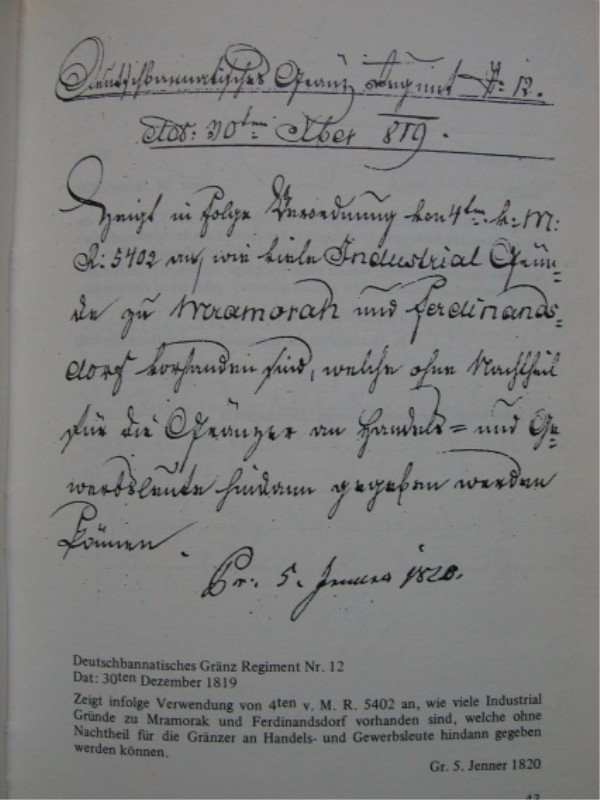 Deutschbannatisches Gränz Regiment N: 12.
Dat: 30ten Xber 819.
Zeigt in Folge Verordnung von 4ten v. M:
R: 5402 an, wie viele Industrial Grün=
de zu Mramorak und Ferdinands=
dorf vorhanden sind, welche ohne Nachtheil
für die Gränzer an Handels= und Ge=
werbsleute hindann gegeben werden
können.
Pr. 5. Jenner 1820.
Deutschbannatisches Gränz Regiment Nr. 12
Dat: 30ten Dezember 1819
Zeigt infolge Verwendung von 4ten v. M. R. 5402 an, wie viele Industrial
Gründe zu Mramorak und Ferdinandsdorf vorhanden sind, welche ohne
Nachtheil für die Gränzer an Handels- und Gewerbsleute hindann gegeben
werden können.
Gr. 5. Jenner 1820